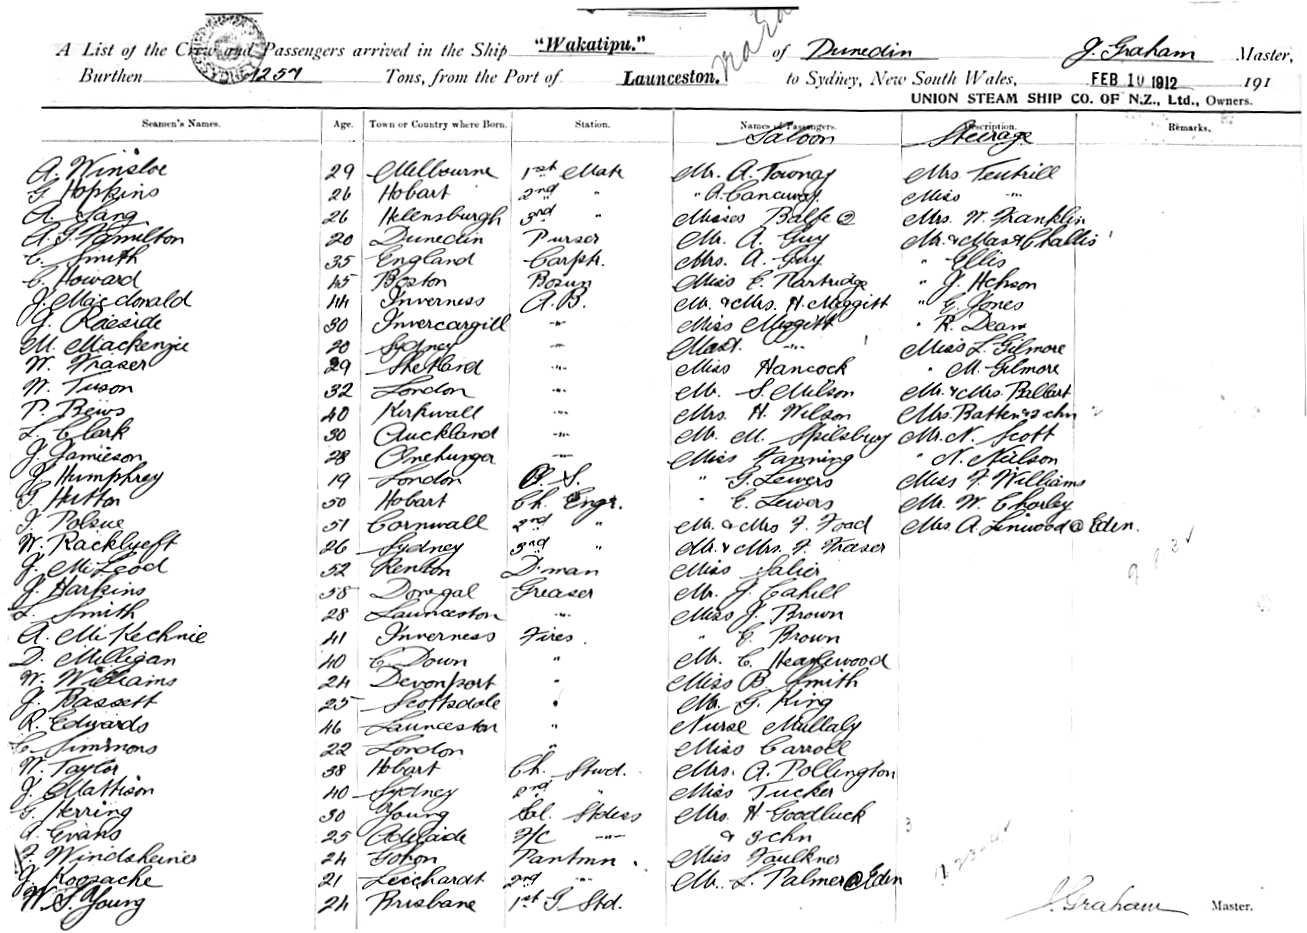 A List of the Crew and Passengers arrived in the Ship "Wakatipu." of Dunedin J. Graham Master,
Burthen 1257 Tons, from the Port of Launceston. to Sydney, New South Wales, FEB 10 1912 191
UNION STEAM SHIP CO. OF N.Z., Ltd., Owners.
Seamen's Names. Age. Town or Country where Born. Station. Names of Passengers. Description. Remarks.
Saloon Steerage
A. Winsloe 29 Melbourne 1st Mate Mr. A. Townay Mrs Teutrill
G Hopkins 26 Hobart 2nd " " A. Miss "
A. Lang 26 Helensburgh 3rd " Misses Balfe 2 Mrs. W. Franklin
A. G. Hamilton 20 Dunedin Purser Mr. A. Guy Mr. & Challis
C. Smith 35 England Carptr. Mrs. A. Guy " Ellis
C. Howard 45 Boston Bosun Miss E. Partridge " J.
J. Macdonald 44 Inverness A.B. Mr. & Mrs. H. Meggitt " E. Jones
J. Raeside 30 Invercargill " Miss Meggitt " R. Dean
M. Mackenzie 20 Sydney " Mast. " 1 Miss L. Gilmore
W. Fraser 29 Shetland " Miss Hancock " M. Gilmore
W. Tuson 32 London " Mr. S. Milson Mr. & Mrs.
P. Bews 40 Kirkwall " Mrs. H. Wilson Mrs.
L. Clark 30 Auckland " Mr. M. Spilsbury Mr. N. Scott
J. Jamieson 28 Onehunga " Miss Fanning " N. Neilson
J. Humphrey 19 London O.S. " G. Lewers Miss F. Williams
G. Hutton 50 Hobart Ch. Engr. " E. Lewers Mr. W. Chorley
J. Polsue 51 Cornwall 2nd " Mr. & Mrs F. Foad Mrs A. Linwood @ Eden.
W. Racklyeft 26 Sydney 3rd " Mr. & Mrs. F. Fraser
J. McLeod 52 Renton D'man Miss Salier
J. Harkins 58 Donegal Greaser Mr. J. Cahill
L. Smith 28 Launceston " Miss J. Brown
A. McKechnie 41 Inverness Fires. " E. Brown
D. Milligan 40 C. Down " Mr. C. Heazlewood
W. Williams 24 Devonport " Miss B Smith
J. Bassett 25 Scottsdale " Mr. G. King
R. Edwards 46 Launceston " Nurse Mullaly
C. Simmons 22 London " Miss Carroll
W. Taylor 38 Hobart Ch. Stwd. Mrs. A. Pollington
J. Mattison 40 Sydney 2nd " Miss Tucker
G. Herring 30 Young Sal. Stdess Mrs. H Goodluck
A. Evans 25 Adelaide F/c " & 3 chn 3
F. Windsheimer 24 Pantmn. Miss Faulkner
J. Koosache 21 Leichardt 2nd " Mr. L. Palmer @ Eden
W. S. Young 24 Brisbane 1st G Std.
J. Graham Master.